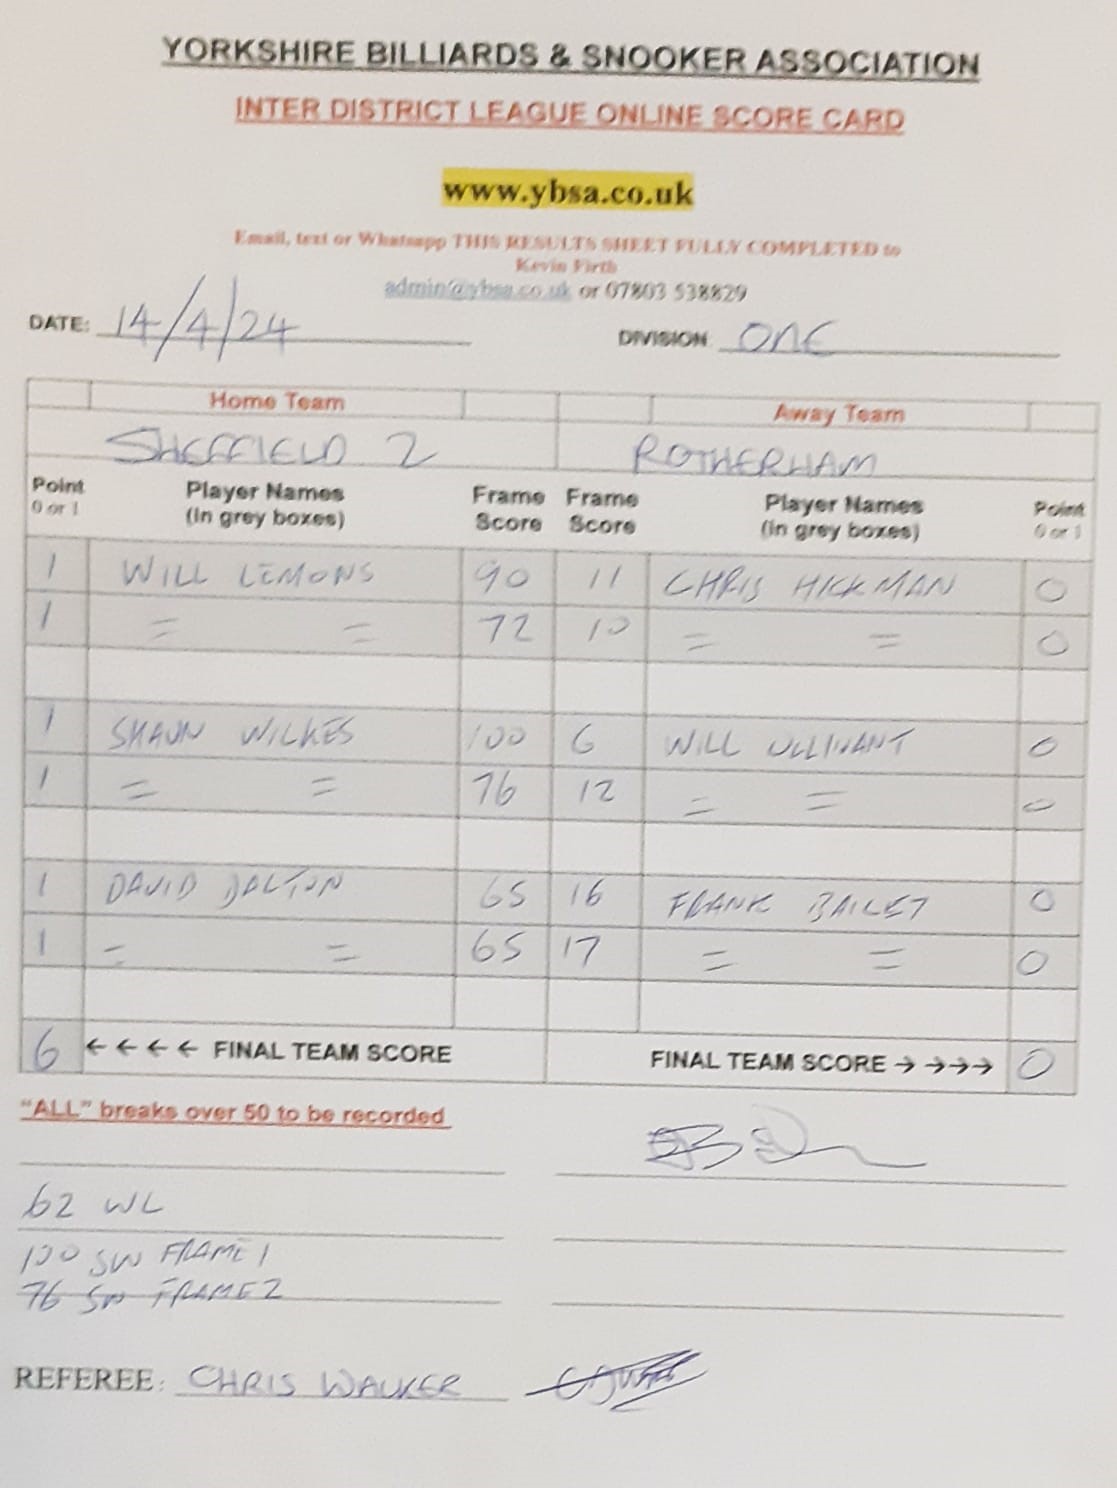 YORKSHIRE BILLIARDS & SNOOKER ASSOCIATION
INTER DISTRICT LEAGUE ONLINE SCORE CARD
www.ybsa.co.uk
Email, text or Whatsapp THIS RESULTS SHEET FULLY COMPLETED to
Kevin Firth
admin@ybsa.co.uk or 07803 538829
DATE: 14/4/24 DIVISION ONE
Home Team Away Team
SHEFFIELD 2 ROTHERHAM
Point Player Names Frame Frame Player Names Point
0 or 1 (In grey boxes) Score Score (in grey boxes) 0 or 1
1 WILL LEMONS 90 11 CHRIS HICKMAN 0
1 = = 72 10 = = 0
1 SHAUN WILKES 100 6 WILL ULLIVANT 0
1 = = 76 12 = = 0
1 DAVID DALTON 65 16 FRANK BAILEY 0
1 = = 65 17 = = 0
6 ←←←← FINAL TEAM SCORE FINAL TEAM SCORE →→→→ 0
"ALL" breaks over 50 to be recorded
62 WL
100 SW FRAME 1
76 SW FRAME 2
REFEREE: CHRIS WALKER